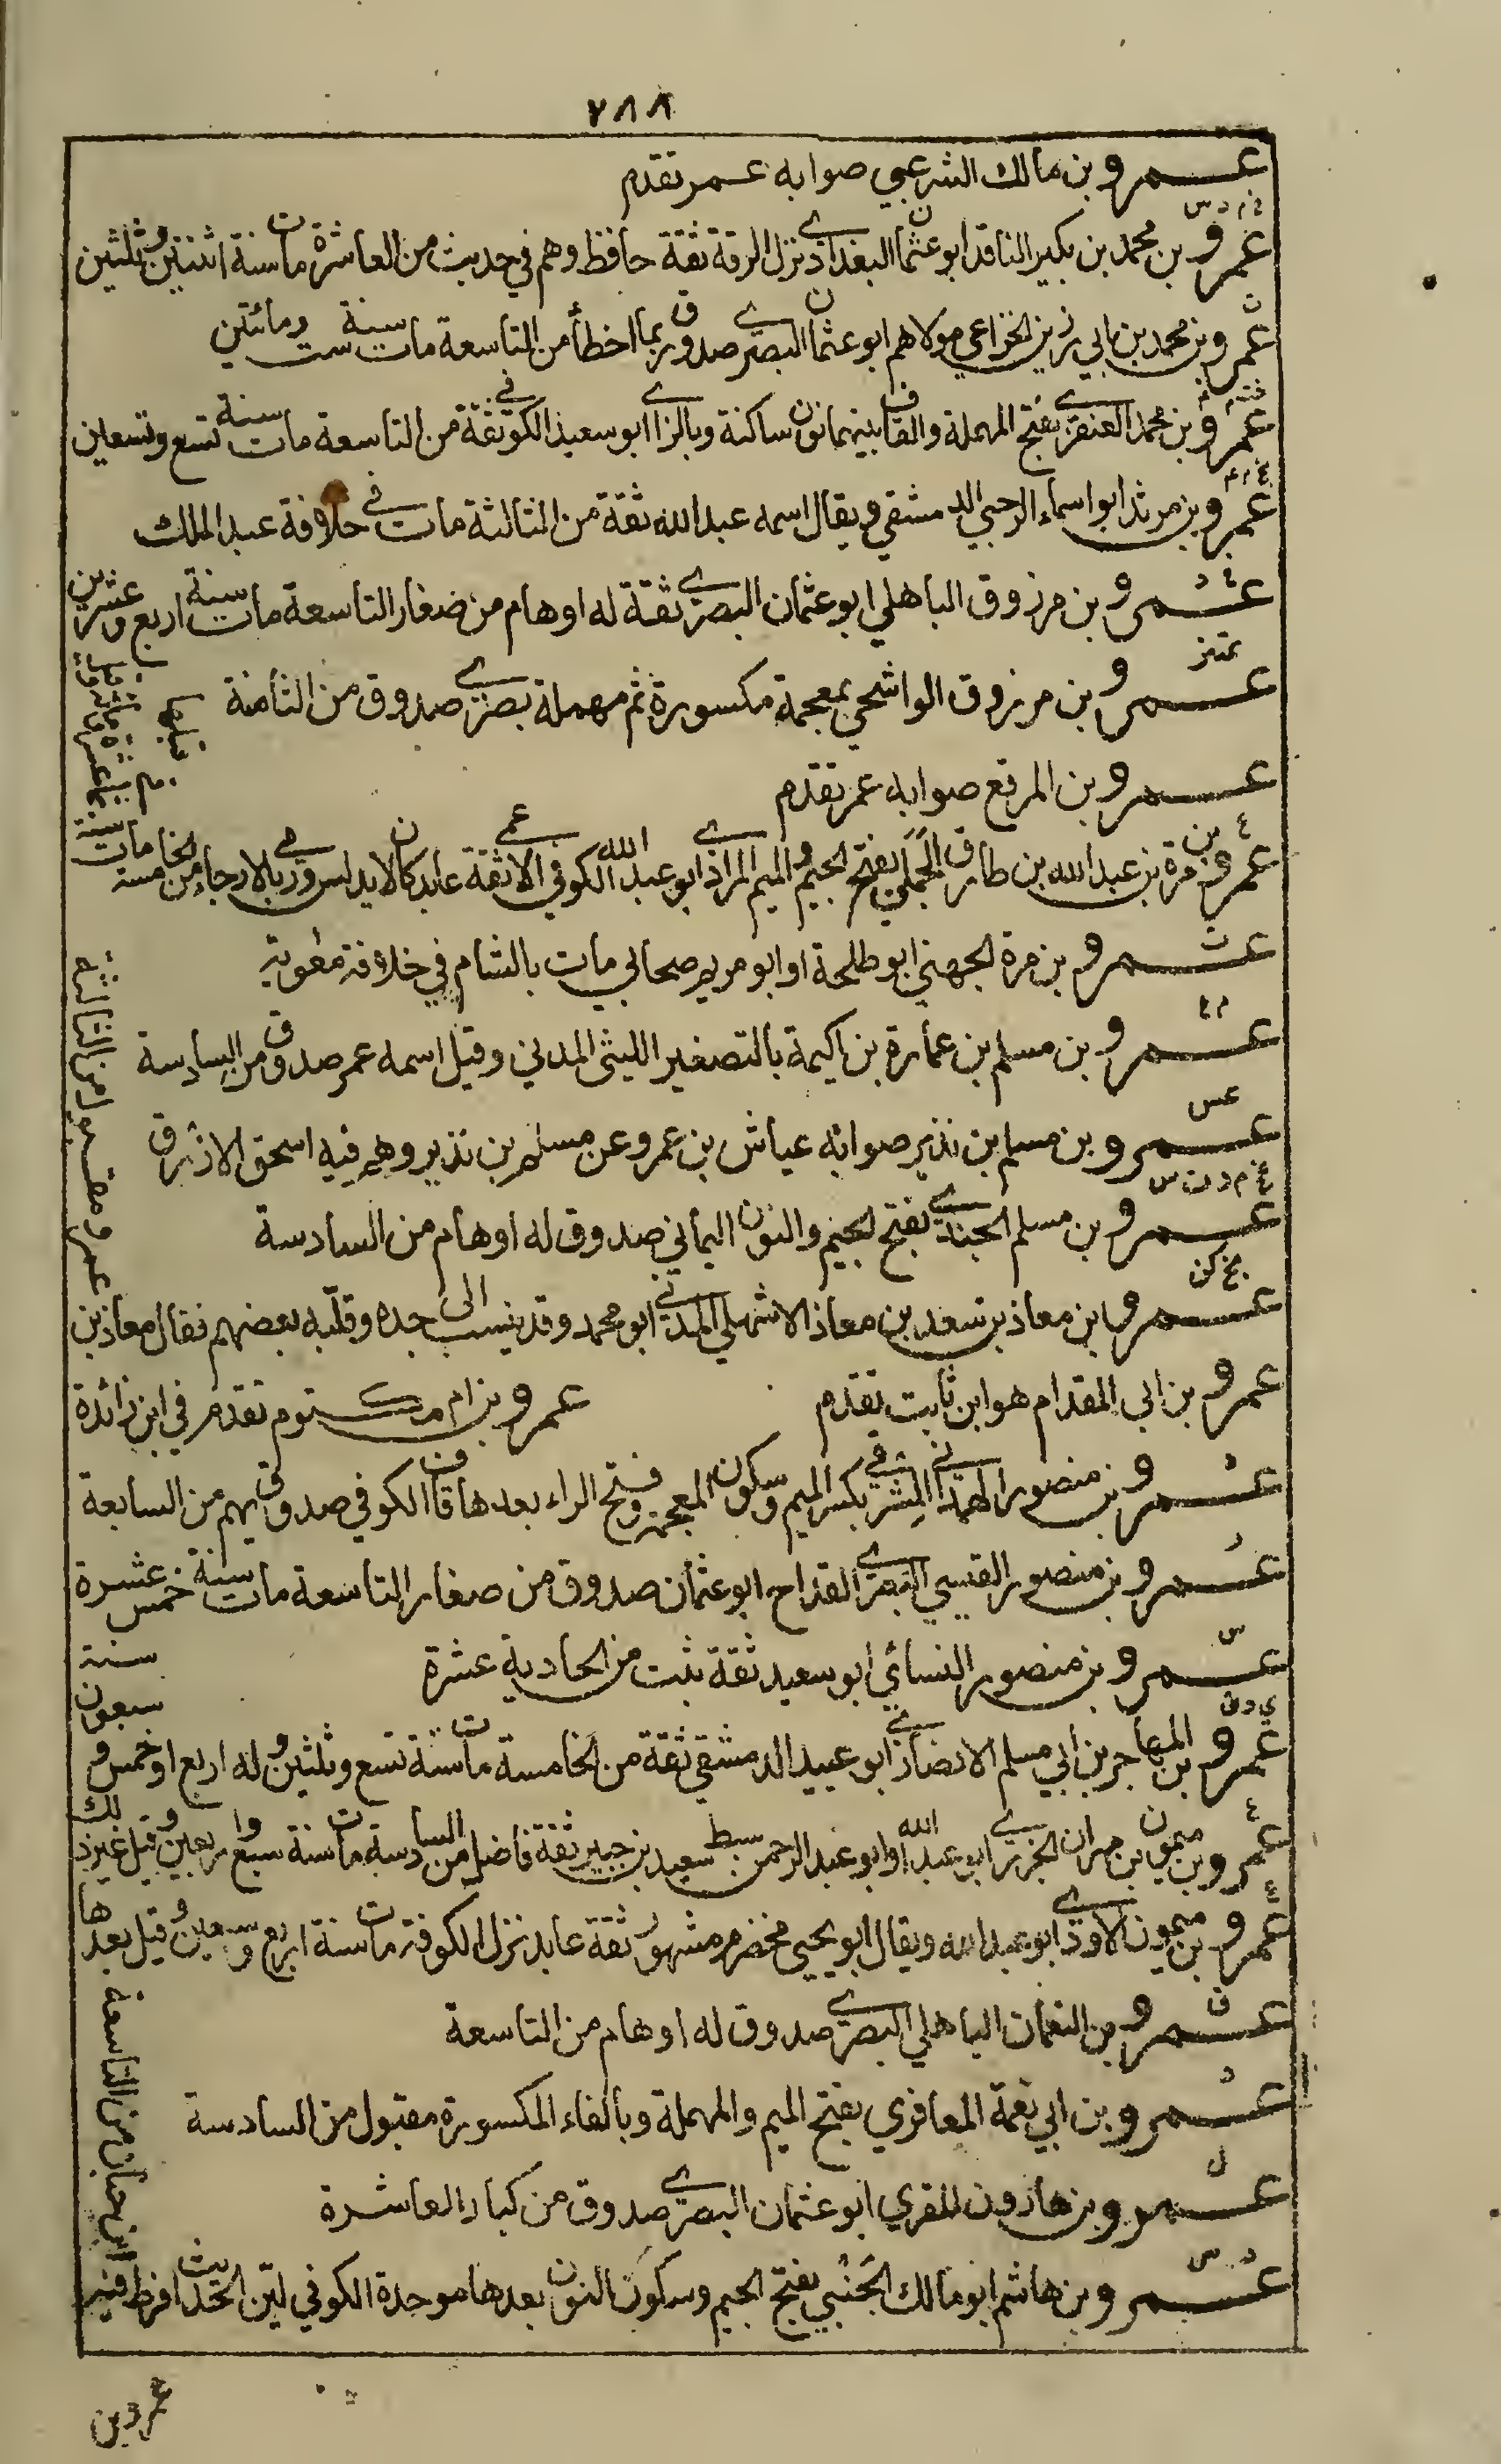 ٢٨٨
عمرو بن مالك الشرعبي صوابه عمر تقدم
خ م د س
عمرو بن محمد بن بكير الناقد ابو عثمان البغدادي نزل الرقة ثقة حافظ وهم في حديث من العاشرة مات سنة اثنتين وثلثين
ت
عمرو بن محمد بن ابي رزين الخزاعي مولاهم ابو عثمان البصري صدوق ربما اخطأ من التاسعة مات سنة ست ومائتين
عمرو بن محمد العنقزي بفتح المهملة والقاف بينهما نون ساكنة وبالزاي ابو سعيد الكوفي ثقة من التاسعة مات سنة تسع وتسعين
عمرو بن مرثد ابو اسماء الرحبي الدمشقي ويقال اسمه عبد الله ثقة من الثالثة مات في خلافة عبد الملك
عمرو بن مرزوق الباهلي ابو عثمان البصري ثقة له اوهام من صغار التاسعة مات سنة اربع وعشرين
تمييز
عمرو بن مرزوق الواشحي بمعجمة مكسورة ثم مهملة بصري صدوق من الثامنة
عمرو بن المرقع صوابه عمر تقدم
ع
عمرو بن مرة بن عبد الله بن طارق الجملي بفتح الجيم والميم المرادي ابو عبد الله الكوفي الاعمى ثقة عابد كان لا يدلس ورمي بالارجاء من الخامسة مات سنة
ثماني عشرة ومائة وقيل قبلها
ت
عمرو بن مرة الجهني ابو طلحة او ابو مريم صحابي مات بالشام في خلافة معوية
م ٤
عمرو بن مسلم بن عمارة بن اكيمة بالتصغير الليثي المدني وقيل اسمه عمر صدوق من السادسة
عس
عمرو بن مسلم بن نذير صوابه عياش بن عمرو عن مسلم بن نذير وهم فيه اسحق الازرق
عخ م د ت س
عمرو بن مسلم الجندي بفتح الجيم والنون اليماني صدوق له اوهام من السادسة
بخ كن
عمرو ابن معاذ بن سعد بن معاذ الاشهلي المدني ابو محمد وقد ينسب الى جده وقلبه بعضهم فقال معاذ بن
عمرو مقبول من الثالثة
عمرو بن ابي المقدام هو ابن ثابت تقدم عمرو بن ام مكتوم تقدم في ابن زائدة
د
عمرو بن منصور الهمداني المشرقي بكسر الميم وسكون المعجمة وفتح الراء بعدها قاف الكوفي صدوق يهم من السابعة
ر
عمرو بن منصور القيسي البصري القداح ابو عثمان صدوق من صغار التاسعة مات سنة خمس عشرة
س
عمرو بن منصور النسائي ابو سعيد ثقة ثبت من الحادية عشرة
عمرو بن المهاجر بن ابي مسلم الانصاري ابو عبيد الدمشقي ثقة من الخامسة مات سنة تسع وثلثين وله اربع او خمس و
سبعون سنة
ع
عمرو بن ميمون بن مهران الجزري ابو عبد الله او ابو عبد الرحمن سبط سعيد بن جبير ثقة فاضل من السادسة مات سنة سبع واربعين وقيل غير ذلك
ع
عمرو بن ميمون الاودي ابو عبد الله ويقال ابو يحيى مخضرم مشهور ثقة عابد نزل الكوفة مات سنة اربع وسبعين وقيل بعدها
ق
عمرو بن النعمان الباهلي البصري صدوق له اوهام من التاسعة
د
عمرو بن ابي نعمة المعافري بفتح الميم والمهملة وبالفاء المكسورة مقبول من السادسة
ل
عمرو بن هارون المقري ابو عثمان البصري صدوق من كبار العاشرة
د س
عمرو بن هاشم ابو مالك الجنبي بفتح الجيم وسكون النون بعدها موحدة الكوفي لين الحديث افرط فيه
ابن حبان من التاسعة
عمرو بن